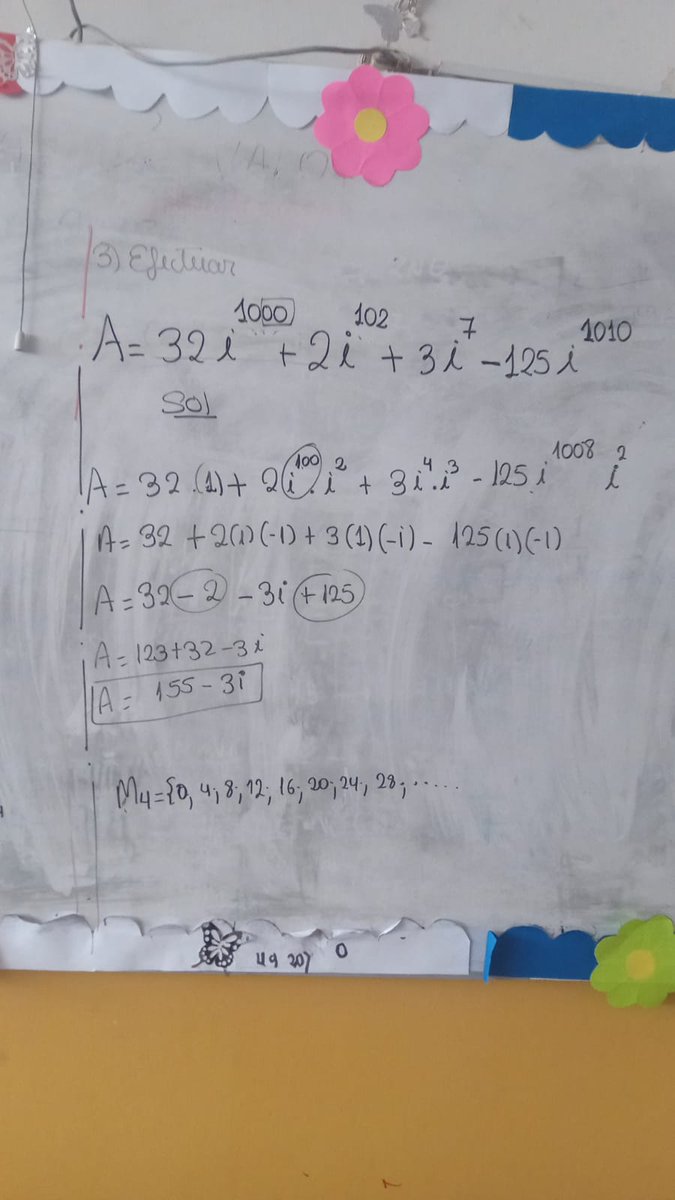 3) Efectuar
A = 32i¹⁰⁰⁰ + 2i¹⁰² + 3i⁷ - 125i¹⁰¹⁰
Sol
A = 32.(1) + 2i¹⁰⁰.i² + 3i⁴.i³ - 125.i¹⁰⁰⁸ i²
A = 32 + 2(1)(-1) + 3(1)(-i) - 125(1)(-1)
A = 32 - 2 - 3i + 125
A = 123+32-3i
A = 155-3i
M₄={0, 4; 8; 12; 16; 20; 24; 28; .....